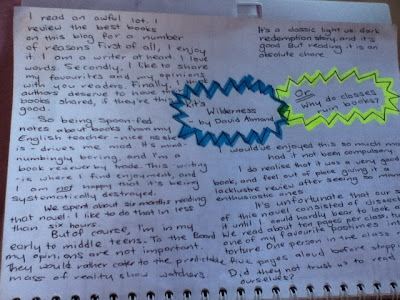 I read an awful lot. I
review the best books
on this blog for a number
of reasons. First of all, I enjoy
it. I am a writer at heart. I love
words. Secondly, I like to share
my favourites and my opinions
with you readers. Finally, I think
authors deserve to have their
books shared, if they're this
good.
So being spoon-fed
notes about books from my
English teacher - nice as she
is - drives me mad. It's mind-
numbingly boring, and I'm a
book reviewer by trade. This writing
- is where I find enjoyment, and
I am not happy that it's being
systematically destroyed.
We spent about six months reading
that novel. I like to do that in less
than six hours.
But of course, I'm in my
early to middle teens. To the Board
my opinions are not important.
They would rather cater to the predictable
mass of reality show watchers.
It's
Wilderness
- by David Almond
It's a classic light vs. dark
redemption story, and it's
good. But reading it is an
absolute chore.
Or:
why do classes
ruin books?
I would've enjoyed this so much more
had it not been compulsory.
I do realise that it is a very good
book, and feel out of place giving it a
lacklustre review after seeing so many
enthusiastic ones.
It's unfortunate that our
of this novel consisted of dissecting
it until I could hardly bear to look at it.
We read about ten pages per class, had
one of my favourite pastimes
torture. One person in the class read
five pages aloud before stopping.
Did they not trust us to read
ourselves?